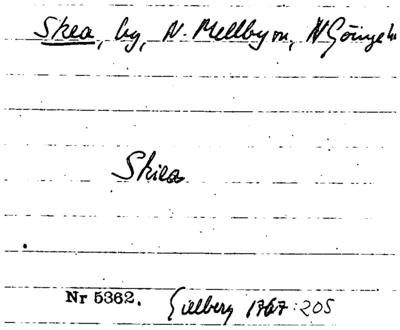 Skea, by, N. Mellby sn, N Göinge h
Skiea
Nr 5362. Gillberg 1767:205